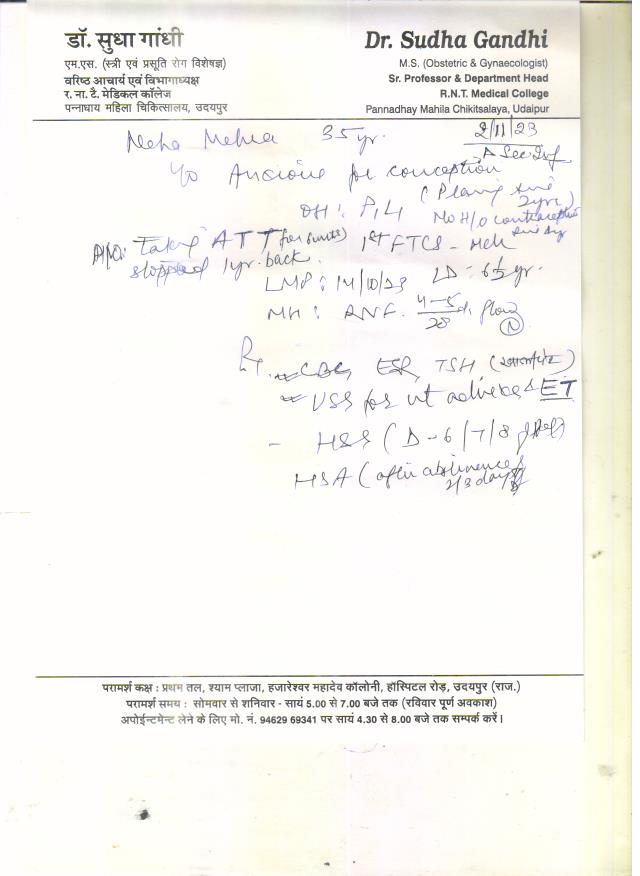 डॉ. सुधा गांधी
एम.एस. (स्त्री एवं प्रसूति रोग विशेषज्ञ)
वरिष्ठ आचार्य एवं विभागाध्यक्ष
र. ना. टै. मेडिकल कॉलेज
पन्नाधाय महिला चिकित्सालय, उदयपुर
Dr. Sudha Gandhi
M.S. (Obstetric & Gynaecologist)
Sr. Professor & Department Head
R.N.T. Medical College
Pannadhay Mahila Chikitsalaya, Udaipur
2/11/23
Neha 35 yr.
Anxious for conception
OH: P1L1 (since 2yrs)
No H/o
taking ATT 1st FTCS - Mch
stopped 1yr. back.
LMP: 14/10/23 LD = 6½ yr.
MH: 4-5/28 d. flow (N)
CBC, ESR, TSH
USG for ut adnexa & ET
- HSG (D-6/7/8
HSA (after abstinence of
2/3 days)
परामर्श कक्ष : प्रथम तल, श्याम प्लाजा, हजारेश्वर महादेव कॉलोनी, हॉस्पिटल रोड़, उदयपुर (राज.)
परामर्श समय : सोमवार से शनिवार - सायं 5.00 से 7.00 बजे तक (रविवार पूर्ण अवकाश)
अपोईन्टमेन्ट लेने के लिए मो. नं. 94629 69341 पर सायं 4.30 से 8.00 बजे तक सम्पर्क करें।